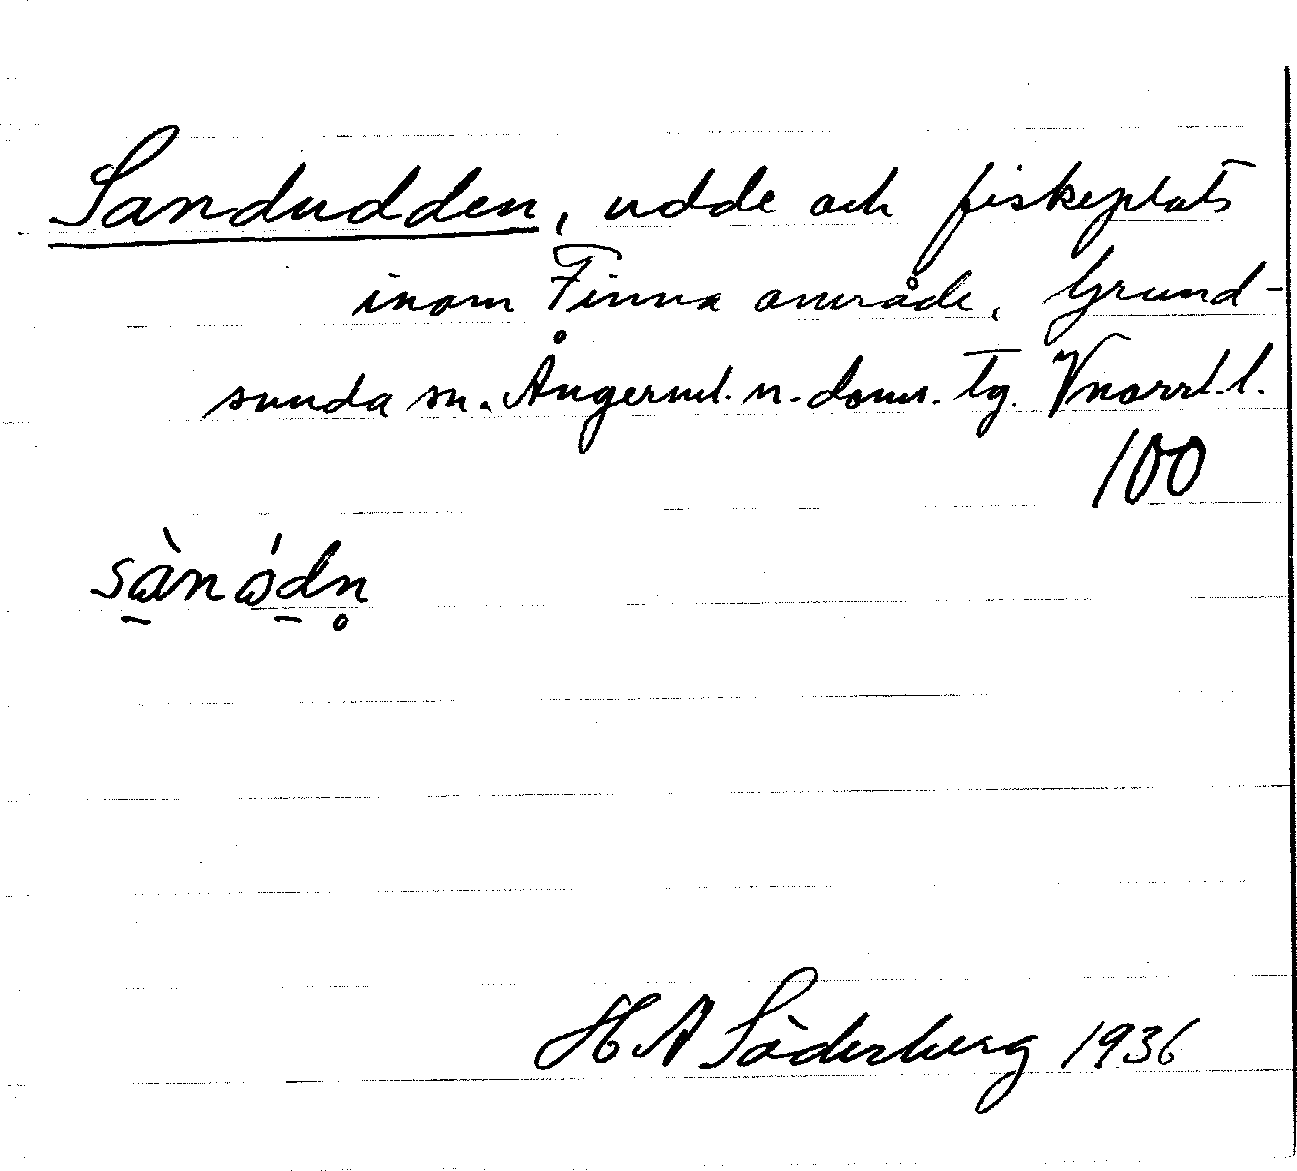 Sandudden, udde och fiskeplats
inom Finna område, Grund-
sunda sn. Ångerml. n. doms. tg. Vnorrl. l.
100
H A Söderberg 1936